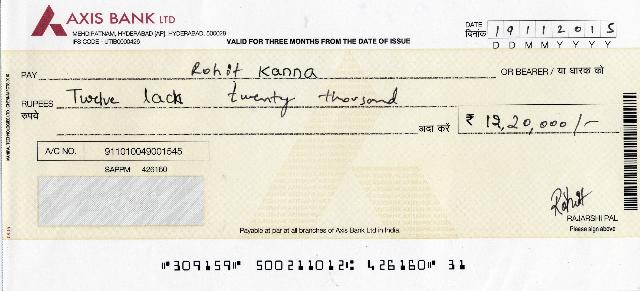 AXIS BANK LTD
MEHDIPATNAM, HYDERABAD [AP], HYDERABAD, 500028
IFS CODE - UTIB0000426
VALID FOR THREE MONTHS FROM THE DATE OF ISSUE
DATE
दिनांक 19112015
D D M M Y Y Y Y
PAY Rohit Kanna OR BEARER / या धारक को
RUPEES Twelve lack twenty thousand
रुपये
अदा करें ₹ 12,20,000/-
A/C NO. 911010049001545
SAPPM 426160
Rohit
RAJARSHI PAL
Please sign above
Payable at par at all branches of Axis Bank Ltd in India.
⑈309159⑈ 500211012⑆ 426160⑈ 31